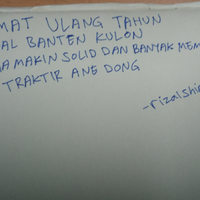 MAT ULANG TAHUN
AL BANTEN KULON
A MAKIN SOLID DAN BANYAK MEM
TRAKTIR ANE DONG
-rizalshi